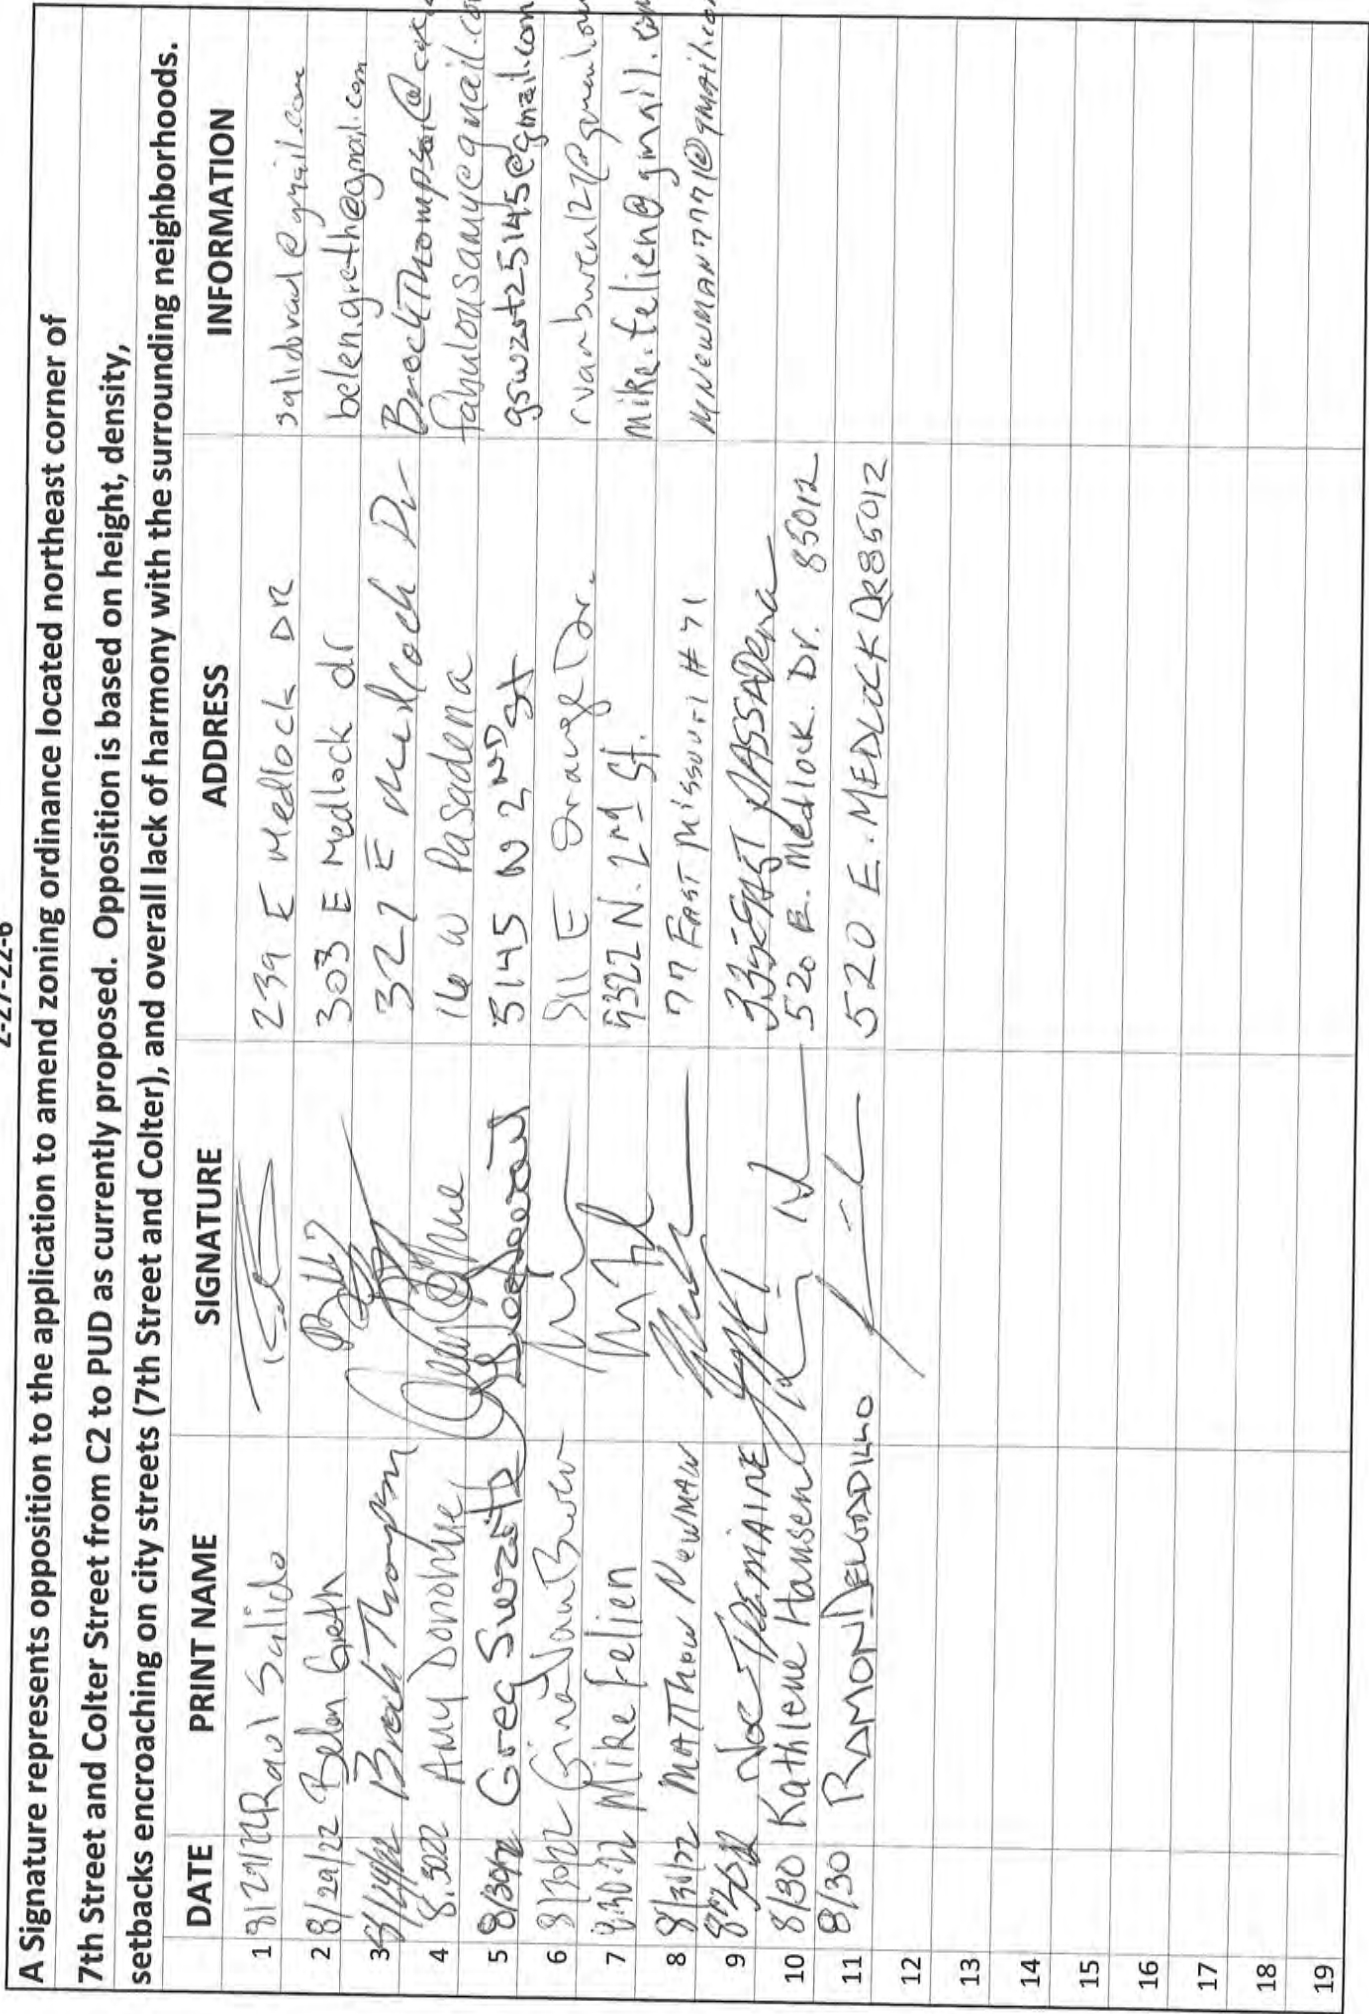 Z-27-22-6
A Signature represents opposition to the application to amend zoning ordinance located northeast corner of
7th Street and Colter Street from C2 to PUD as currently proposed. Opposition is based on height, density,
setbacks encroaching on city streets (7th Street and Colter), and overall lack of harmony with the surrounding neighborhoods.
DATE PRINT NAME SIGNATURE ADDRESS INFORMATION
1 8/29/22 Raol Salido 239 E Medlock DR @gmail.com
2 8/29/22 Belen Greth 303 E Medlock dr belen.greth@gmail.com
3 8/29/22 Brock Thompson 327 E Medlock Dr
4 8.30.22 AMY Donohue 16 W Pasadena
5 8/30/22 Greg Swartz 5145 N 2ND St gswzrt25145@gmail.com
6 8/30/22 Gina Van Buren E Orange Dr.
7 8.30.22 Mike Felien N. 2nd St. mike.felien@gmail.com
8 8/30/22 MATThew NewMAN 77 EAST Missouri #71 MNewMAN7771@gmail.com
9 8/30/22 EAST PASSADena
10 8/30 Kathlene Hansen 520 E. Medlock. Dr. 85012
11 8/30 RAMON DELGADILLO 520 E. MEDLOCK DR 85012
12
13
14
15
16
17
18
19